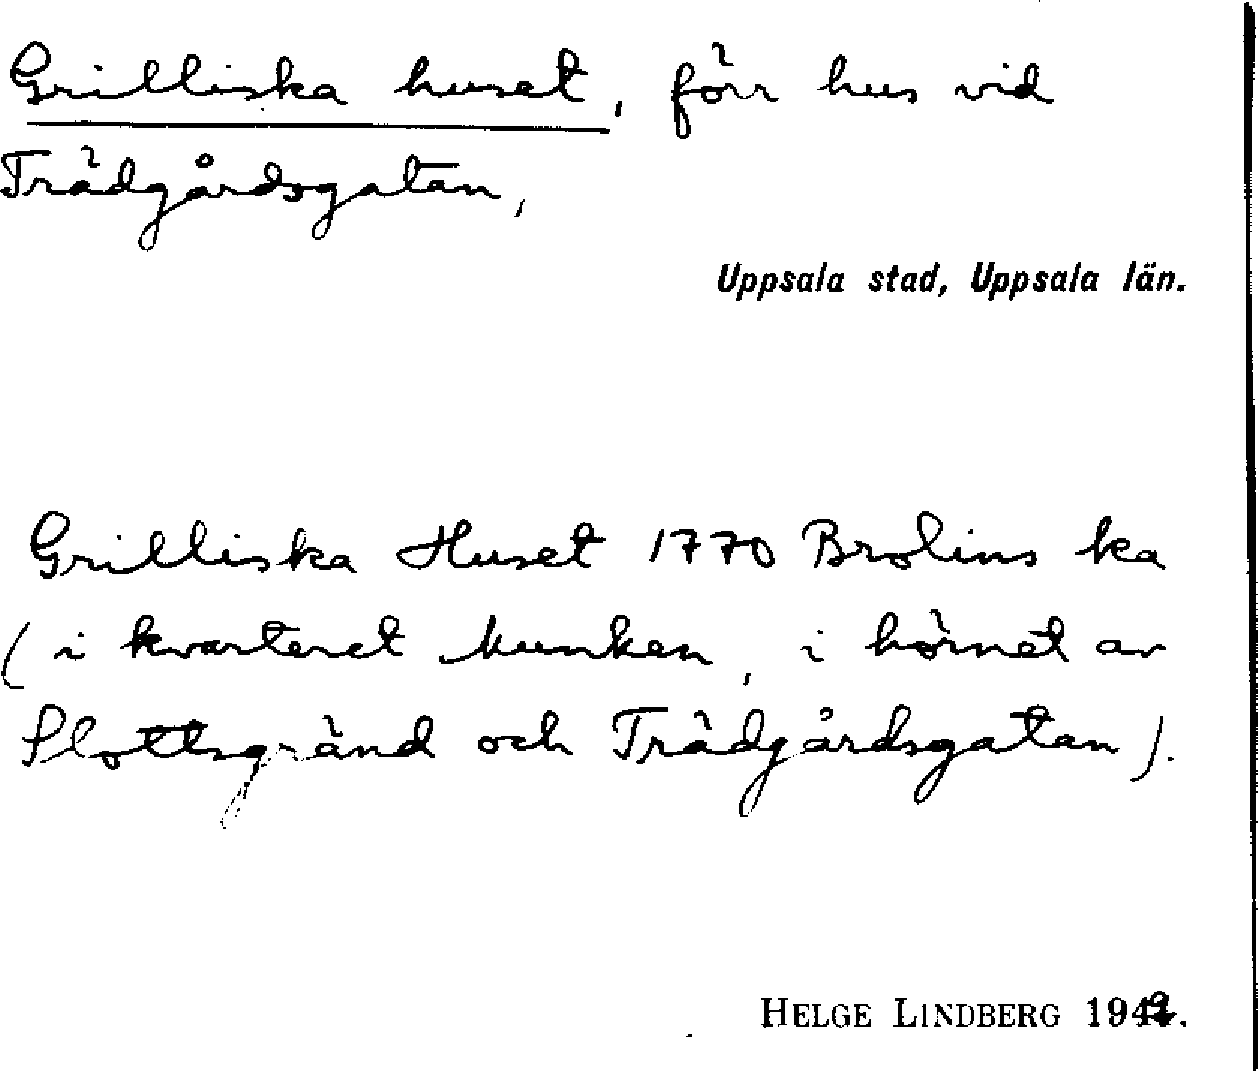 Grilliska huset, förr hus vid
Trädgårdsgatan,
Uppsala stad, Uppsala län.
Grilliska Huset 1770 Brolins ka
(i kvarteret Munken, i hörnet av
Slottsgränd och Trädgårdsgatan).
HELGE LINDBERG